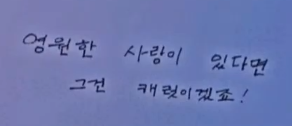 영원한 사랑이 있다면
그건 캐럿이겠죠!